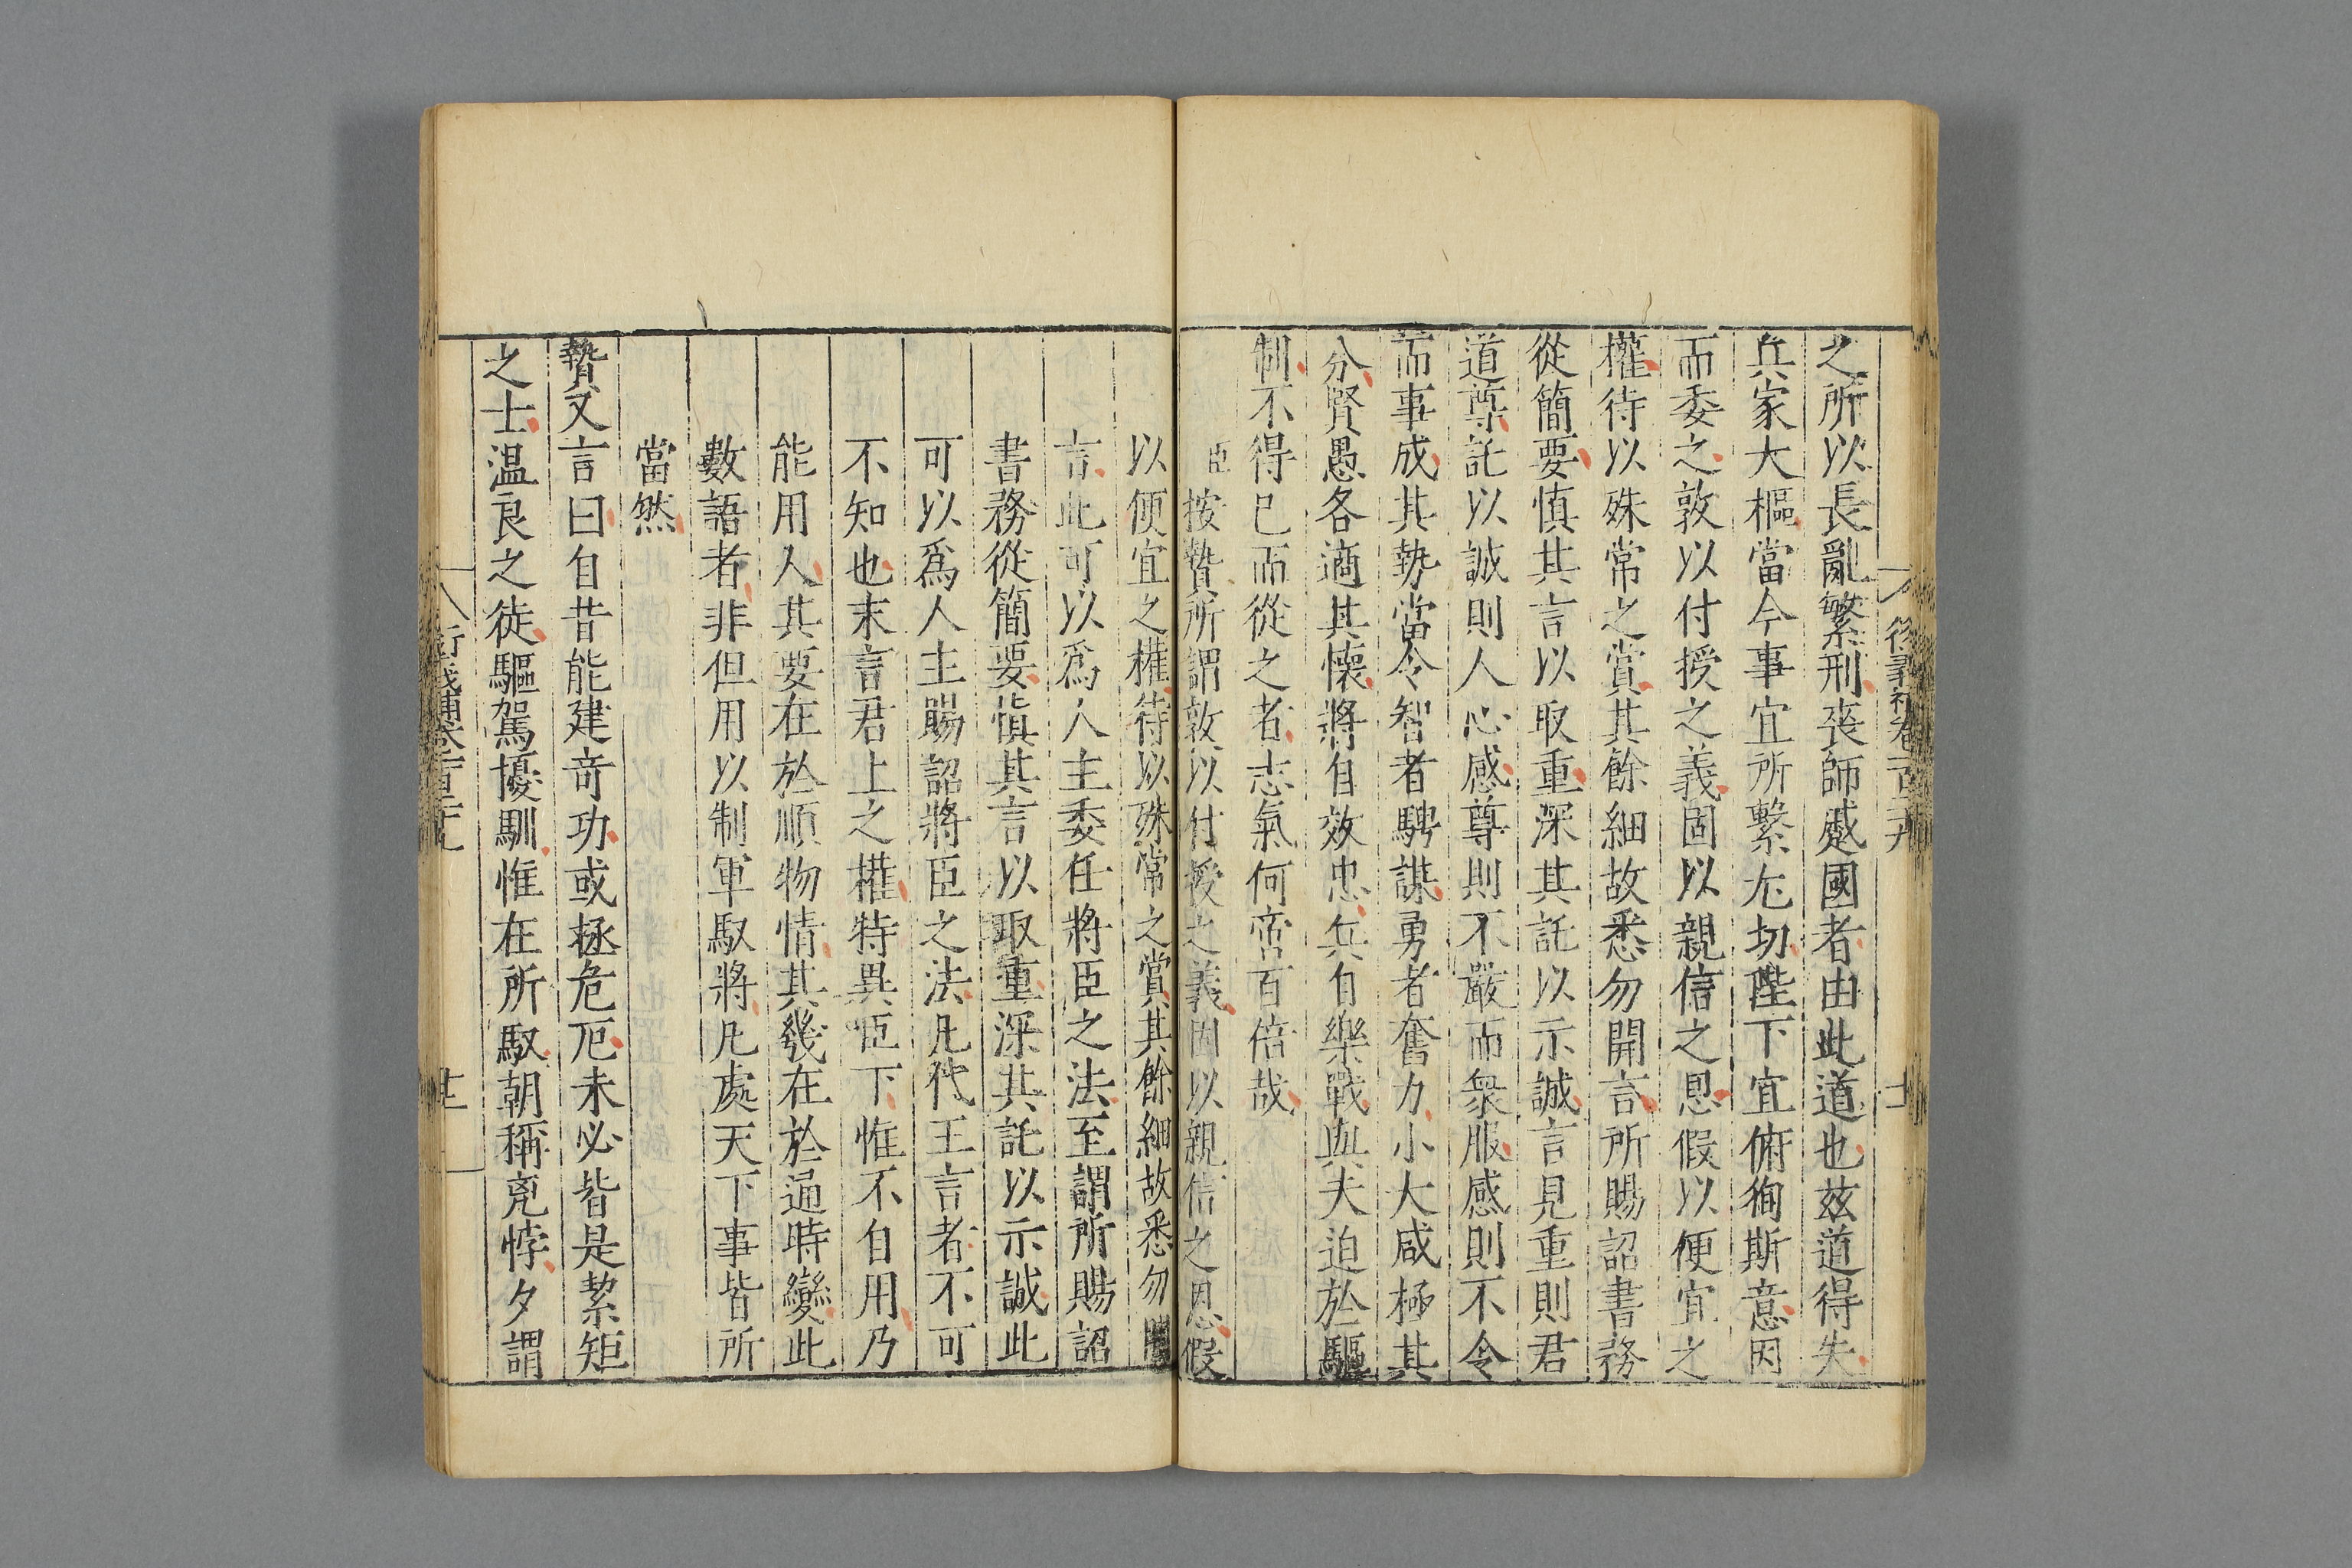 之所以長亂繁刑喪師蹙國者由此道也玆道得失
兵家大樞當今事宜所繫尤切陛下宜俯徇斯意因
而委之敦以付授之義固以親信之恩假以便宜之
權待以殊常之賞其餘細故悉勿開言所賜詔書務
從簡要慎其言以取重深其託以示誠言見重則君
道尊託以誠則人心感尊則不嚴而衆服感則不令
而事成其勢當令智者騁謀勇者奮力小大咸極其
分賢愚各適其懷將自效忠兵自樂戰與夫迫於驅
制不得已而從之者志氣何啻百倍哉
臣按贄所謂敦以付授之義固以親信之恩假
以便宜之權待以殊常之賞其餘細故悉勿開
言此可以爲人主委任將臣之法至謂所賜詔
書務從簡要慎其言以取重深其託以示誠此
可以爲人主賜詔將臣之法凡代王言者不可
不知也末言君上之權特異臣下惟不自用乃
能用人其要在於順物情其幾在於通時變此
數語者非但用以制軍馭將凡處天下事皆所
當然
贄又言曰自昔能建奇功或拯危厄未必皆是絜矩
之士温良之徒驅駕擾馴惟在所馭朝稱兇悖夕謂
衍義補卷一百三十